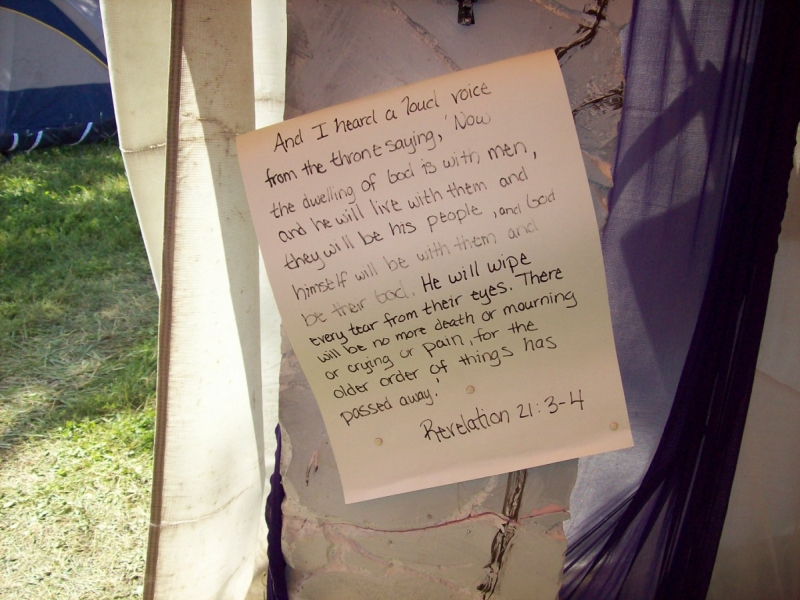 And I heard a loud voice
from the throne saying, 'Now
the dwelling of God is with men,
and he will live with them and
they will be his people, and God
himself will be with them and
be their God. He will wipe
every tear from their eyes. There
will be no more death or mourning
or crying or pain, for the
older order of things has
passed away.'
Revelation 21:3-4